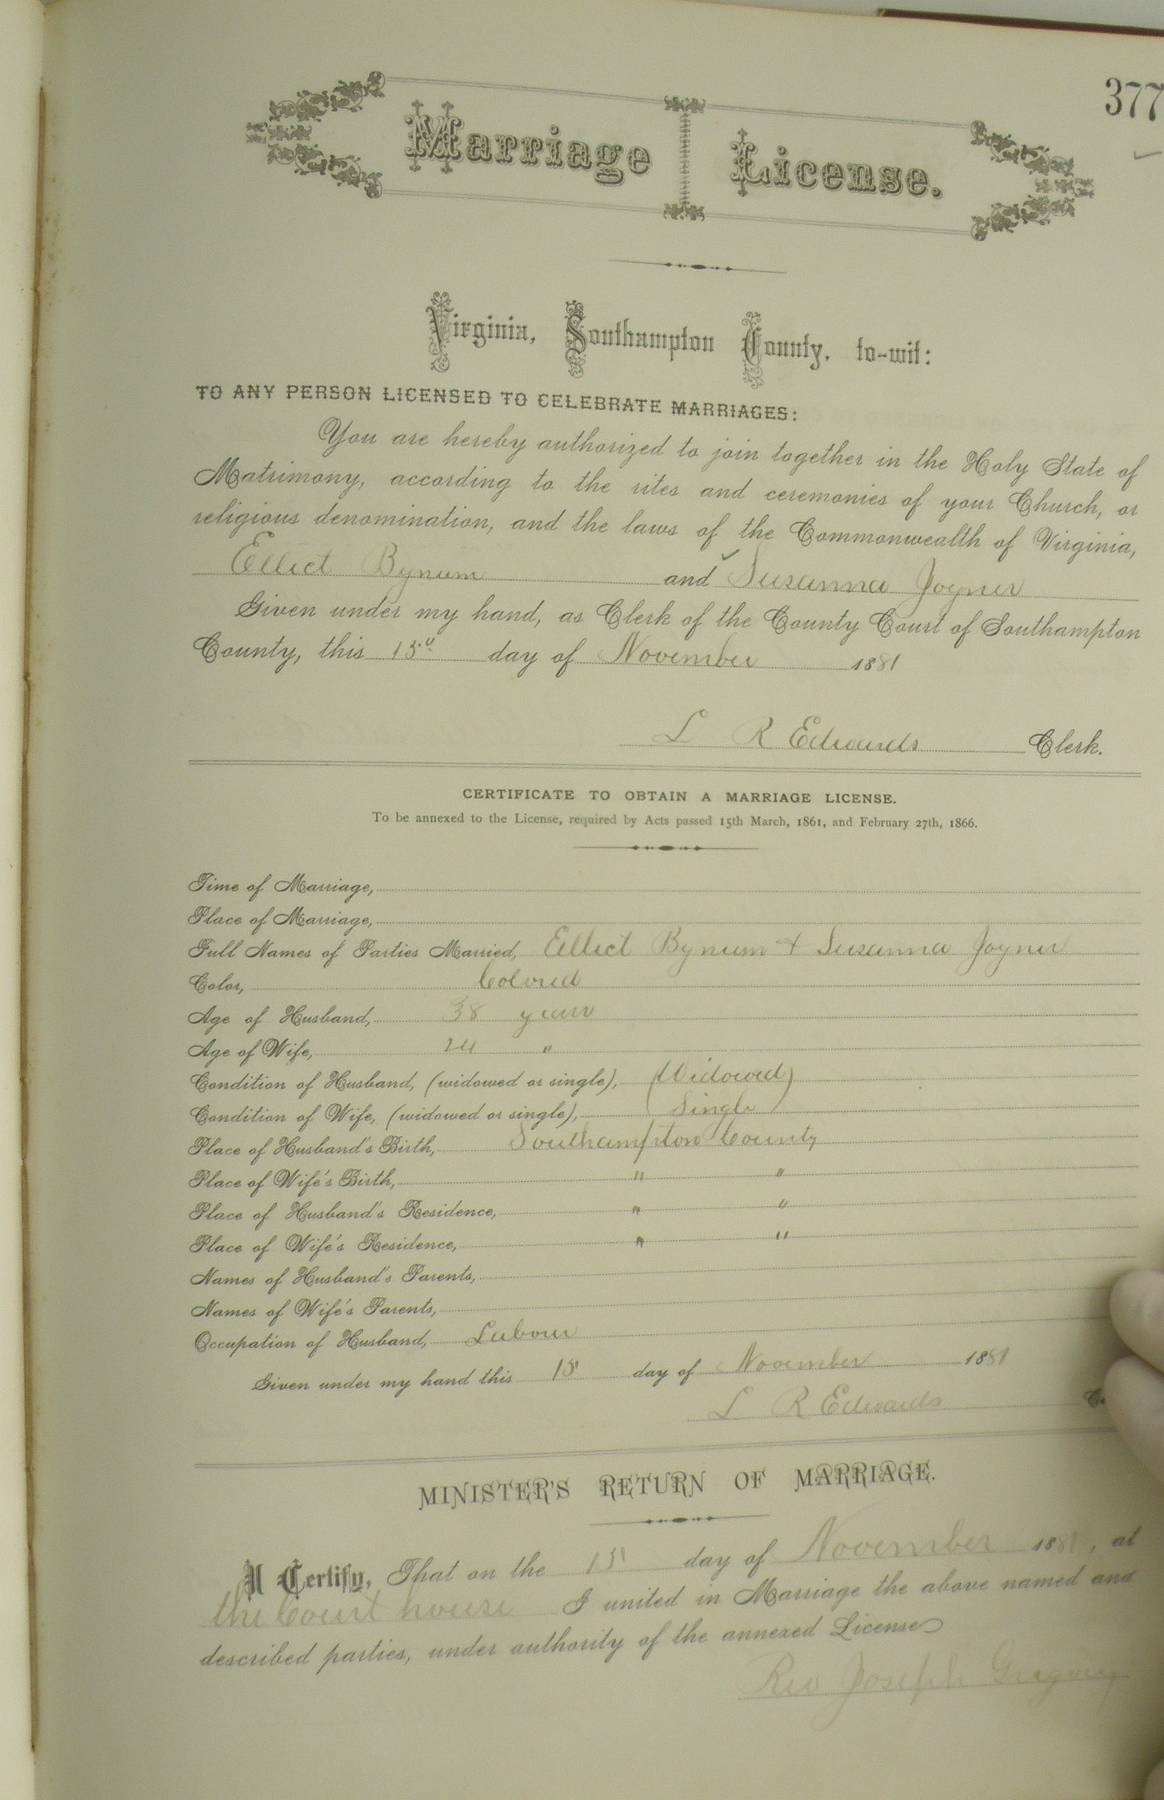 377
Marriage License.
Virginia, Southampton County, to-wit:
TO ANY PERSON LICENSED TO CELEBRATE MARRIAGES:
You are hereby authorized to join together in the Holy State of
Matrimony, according to the rites and ceremonies of your Church, or
religious denomination, and the laws of the Commonwealth of Virginia,
Ellict Bynum and Susanna Joyner
Given under my hand, as Clerk of the County Court of Southampton
County, this 15" day of November 1881
L R Edwards Clerk.
CERTIFICATE TO OBTAIN A MARRIAGE LICENSE.
To be annexed to the License, required by Acts passed 15th March, 1861, and February 27th, 1866.
Time of Marriage,
Place of Marriage,
Full Names of Parties Married, Ellict Bynum + Susanna Joyner
Color, Colored
Age of Husband, 38 years
Age of Wife, 24 "
Condition of Husband, (widowed or single), (Widowed)
Condition of Wife, (widowed or single), Single
Place of Husband's Birth, Southampton County
Place of Wife's Birth, " "
Place of Husband's Residence, " "
Place of Wife's Residence, " "
Names of Husband's Parents,
Names of Wife's Parents,
Occupation of Husband, Labour
Given under my hand this 15 day of November 1881
L R Edwards C
MINISTER'S RETURN OF MARRIAGE.
I Certify, That on the 15 day of November 1881, at
the Court house I united in Marriage the above named and
described parties, under authority of the annexed License
Rev Joseph Gregory